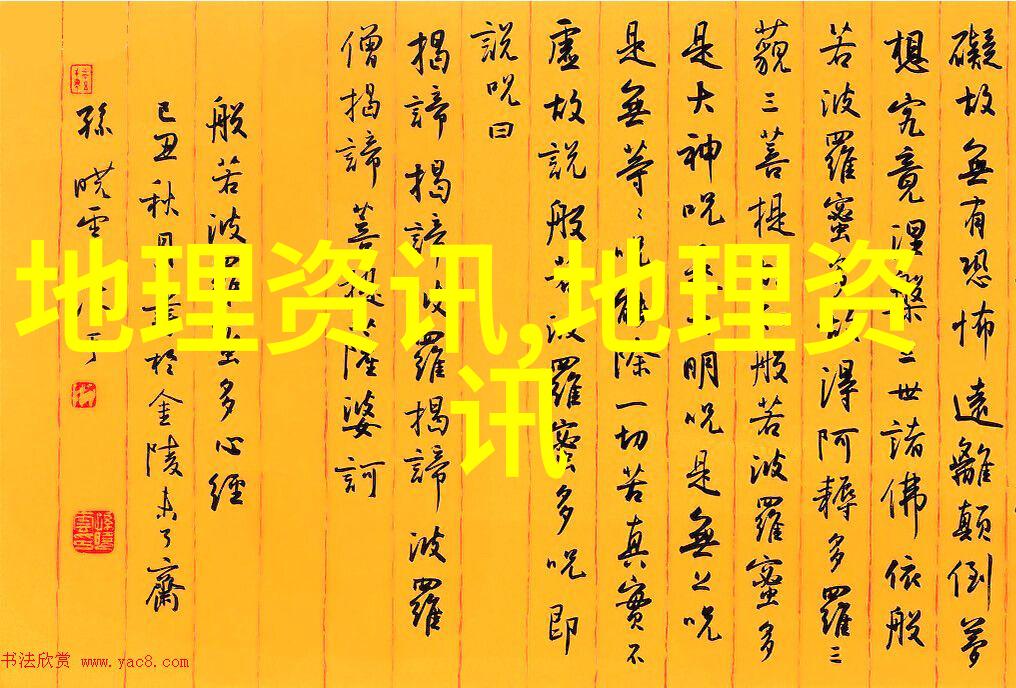 礙故無有恐怖遠離顛倒夢
想究竟涅槃三世諸佛依般
若波羅蜜多故得阿耨多羅三
藐三菩提故知般若波羅蜜多
是大神咒是大明咒是無上咒
是無等〻咒能除一切苦真實不
虛故說般若波羅蜜多咒即
說咒曰
揭諦揭諦波羅揭諦波羅
僧揭諦菩提薩婆訶
般若波羅蜜多心經
己丑秋月書於金陵未了齋
孫曉雲
地理资讯,地理资
讯
书法欣赏 www.yac8.com